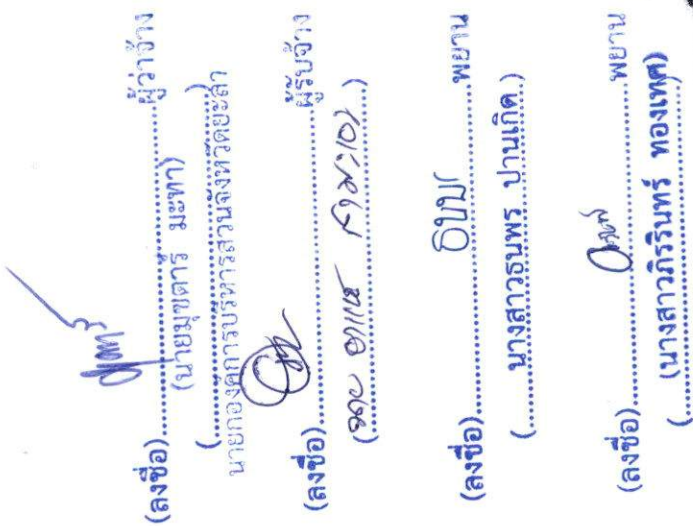 (ลงชื่อ)..............................ผู้ว่าจ้าง
(นายมุขตาร์ มะทา)
(..............................)
นายกองค์การบริหารส่วนจังหวัดยะลา
(ลงชื่อ)..............................ผู้รับจ้าง
(..............................)
(ลงชื่อ)..............................พยาน
(........นางสาวธนพร ปานเกิด.)
(ลงชื่อ)..............................พยาน
(นางสาวภิรรินทร์ ทองเทศ)
(..............................)